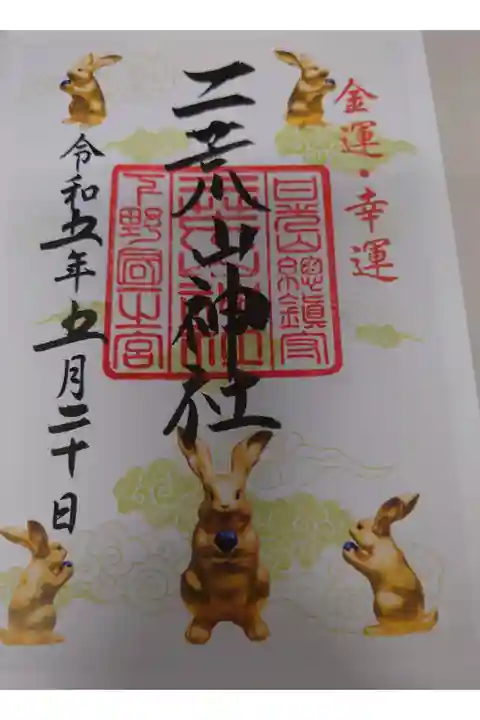 金運・幸運
二荒山神社
日光山總鎮守
二荒山神社
下野國一之宮
令和五年五月二十日